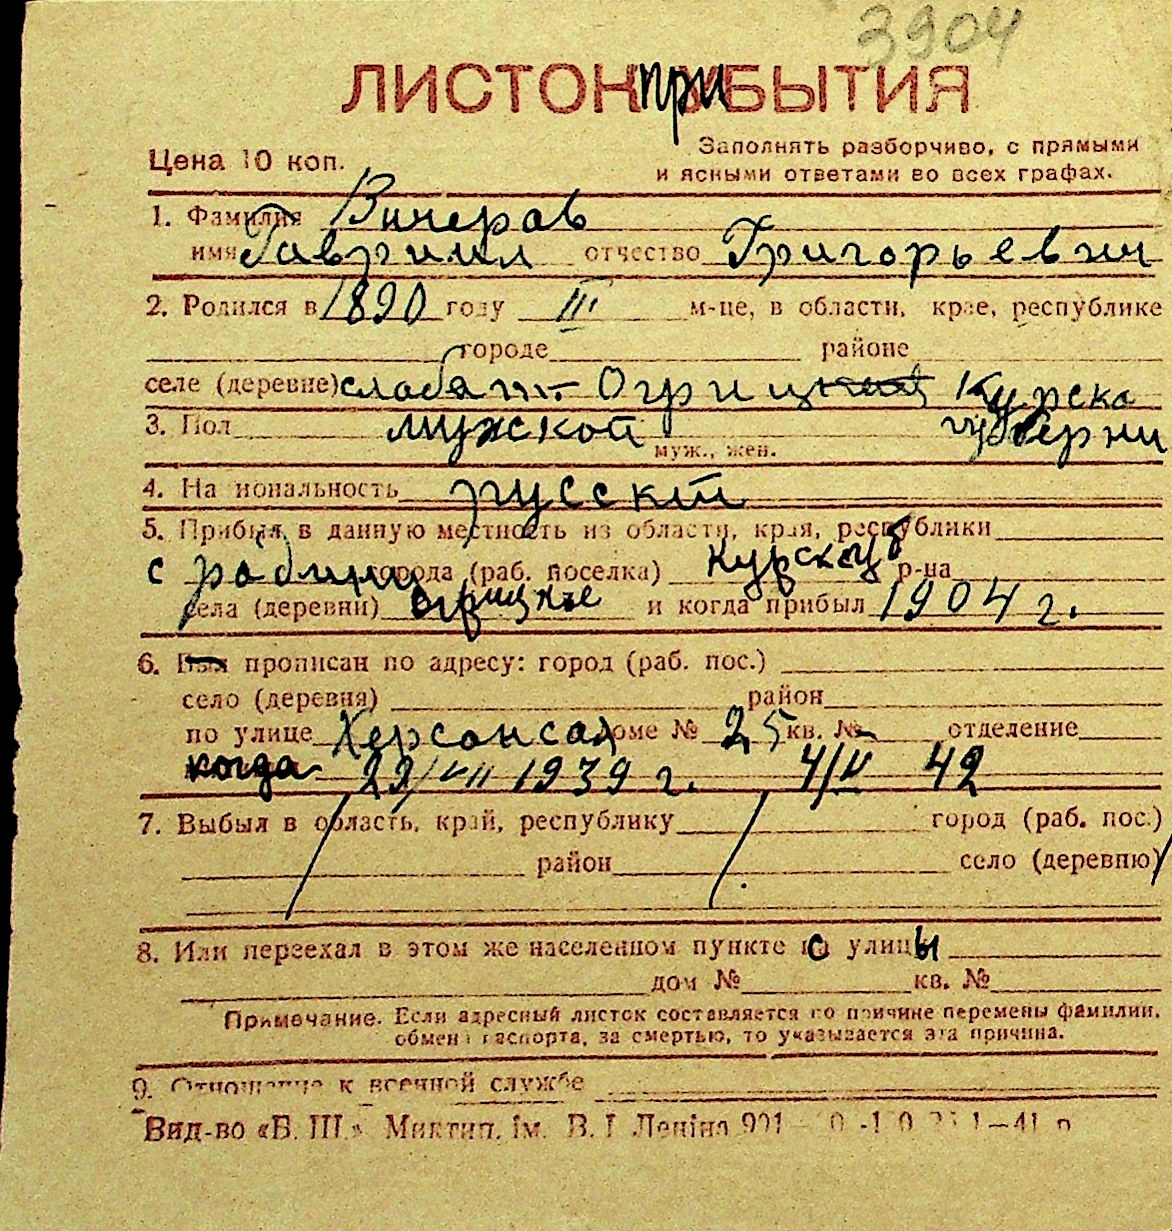 3904
ЛИСТОК ПРИБЫТИЯ
Цена 10 коп.
Заполнять разборчиво, с прямыми
и ясными ответами во всех графах.
1. Фамилия Вичеров
имя Гавриил отчество Григорьевич
2. Родился в 1890 году III м-це, в области, крае, республике
городе районе
селе (деревне) слабят. Огрицкай Курска
3. Пол мужской губерни
муж., жен.
4. Национальность руский
5. Прибыл в данную местность из области, края, республики
с родины города (раб. поселка) Курск губ р-на
села (деревни) и когда прибыл 1904 г.
6. Был прописан по адресу: город (раб. пос.)
село (деревня) район
по улице Херсонская доме № 25 кв. № – отделение
когда 22/VII 1939 г. 4/IV 42
7. Выбыл в область, край, республику город (раб. пос.)
район село (деревню)
8. Или переехал в этом же населенном пункте с улицы
дом № кв. №
Примечание. Если адресный листок составляется по причине перемены фамилии,
обмена паспорта, за смертью, то указывается эта причина.
9. Отношение к военной службе
Вид-во «Б. Ш.» Миктип. ім. В. І Леніна 901